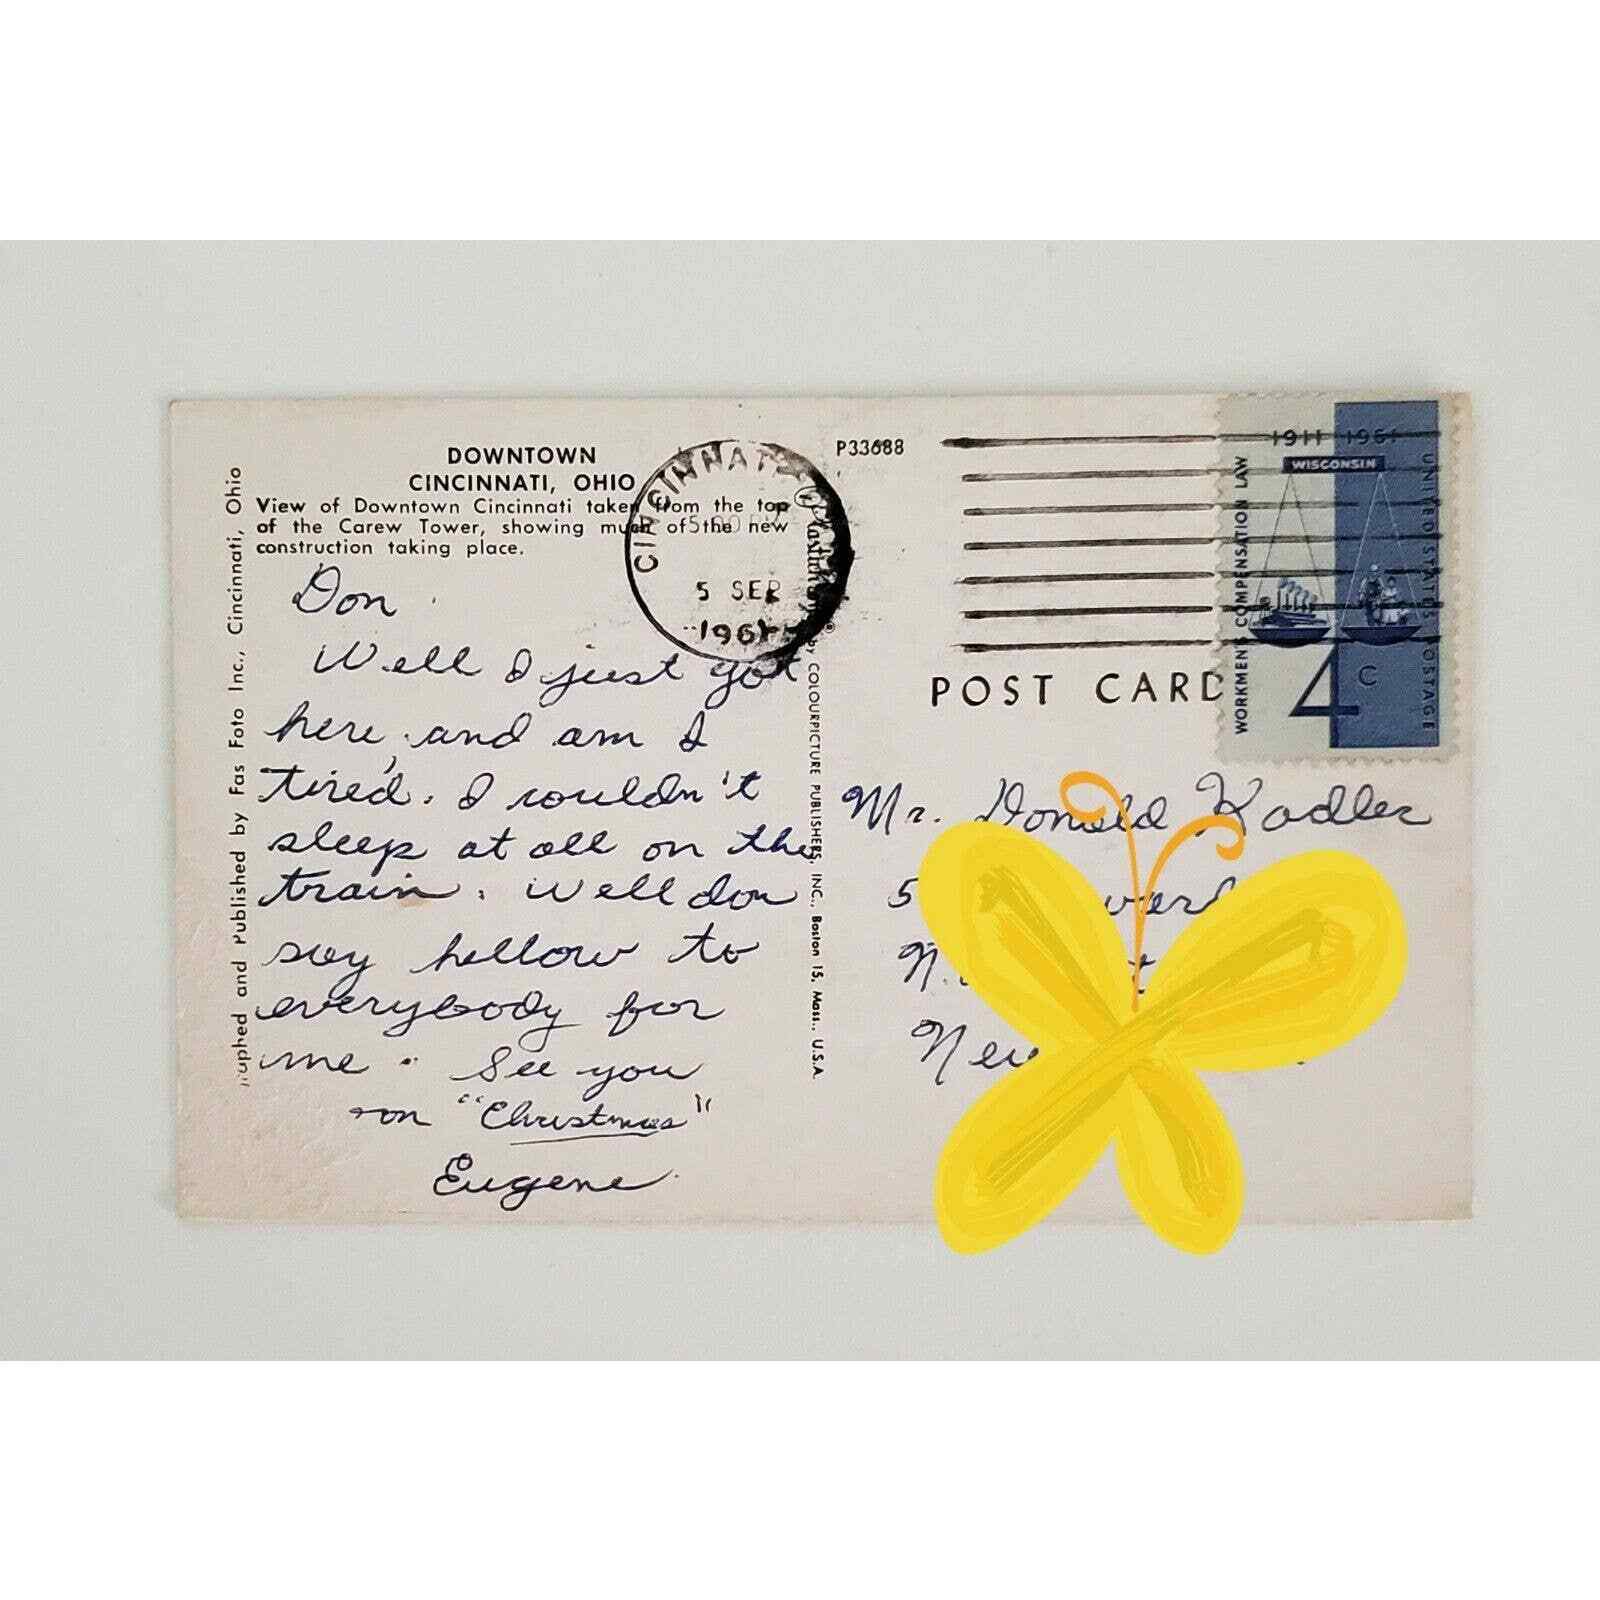 DOWNTOWN
CINCINNATI, OHIO
View of Downtown Cincinnati taken from the top
of the Carew Tower, showing much of the new
construction taking place.
Don
Well I just got
here, and am I
tired. I couldn't
sleep at all on the
train. Well don
say hellow to
everybody for
me. See you
on "Christmas"
Eugene
uphed and Published by Fas Foto Inc., Cincinnati, Ohio
CINCINNATI
5 SEP
1961
by COLOURPICTURE PUBLISHERS, INC., Boston 15, Mass., U.S.A.
P33688
POST CARD
1911 1961
WISCONSIN
WORKMEN'S COMPENSATION LAW
UNITED STATES POSTAGE
4 C
Mr. Donald Kadler
5
N.
New